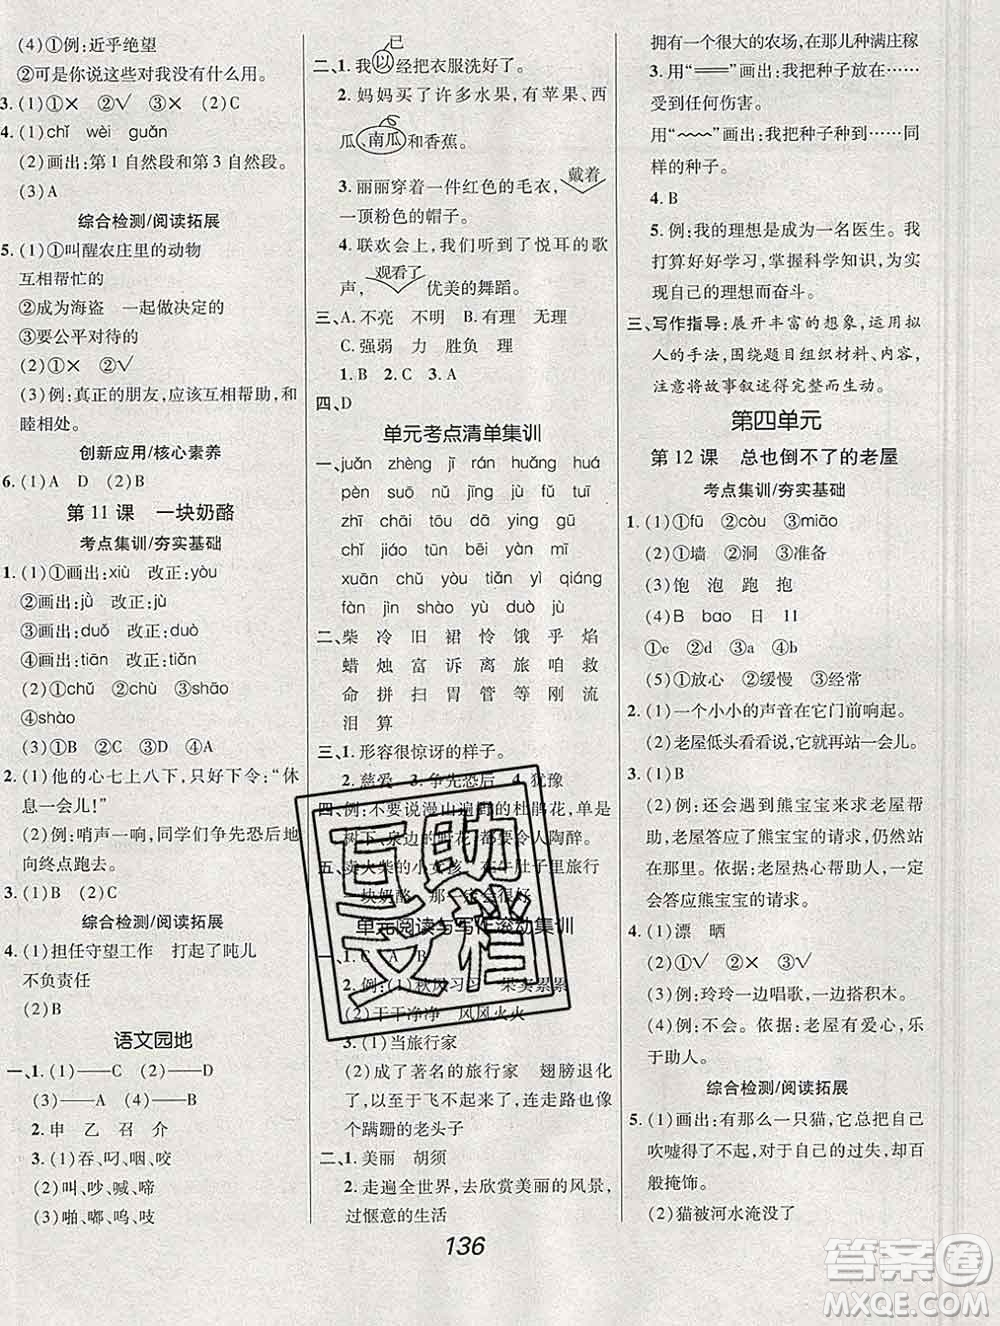 (4)①例:近乎绝望
②可是你说这些对我没有什么用。
3.(1)①× ②√ ③× (2)C
4.(1)chǐ wèi guǎn
(2)画出:第1自然段和第3自然段。
(3)A
综合检测/阅读拓展
5.(1)①叫醒农庄里的动物
互相帮忙的
②成为海盗 一起做决定的
③要公平对待的
(2)①× ②√
(3)例:真正的朋友,应该互相帮助,和
睦相处。
创新应用/核心素养
6.(1)A D (2)B
第11课 一块奶酪
考点集训/夯实基础
1.(1)①画出:xiù 改正:yòu
②画出:jǜ 改正:jù
③画出:duǒ 改正:duō
④画出:tiān 改正:tiǎn
(2)①chǔ ②chù ③shāo
④shào
(3)①D ②C ③A ④B
2.(1)他的心七上八下,好下令:“休
息一会儿!”
(2)例:哨声一响,同学们争先恐后地
向终点跑去。
3.(1)B (2)C
综合检测/阅读拓展
4.(1)担任守望工作 打起了盹儿
不负责任
(2)B
语文园地
一、1.(1)——C (2)——D
(3)——A (4)——B
2.申 乙 召 介
3.(1)吞、叼、咽、咬
(2)叫、吵、喊、啼
(3)啪、嘟、呜、吱
已
二、1.我以经把衣服洗好了。
2.妈妈买了许多水果,有苹果、西
瓜、南瓜和香蕉。
戴着
3.丽丽穿着一件红色的毛衣,
一顶粉色的帽子。
4.联欢会上,我们听到了悦耳的歌
观看了
声, 优美的舞蹈。
三、A.不亮 不明 B.有理 无理
C.强弱 力 胜负 理
1.B 2.C 3.A
四、D
单元考点清单集训
一、juǎn zhèng jī rán huǎng huá
pèn suō nǔ jǐng zhǐ wēng
zhī chāi tōu dān zōng cū
chǐ jiáo tūn bēi yàn mī
xuān chá cháo wēi yì qiáng
fàn jìn shào yù dù jù
二、柴 冷 旧 裙 怜 饿 乎 焰
蜡 烛 富 诉 离 旅 咱 救
命 拼 扫 胃 管 等 刚 流
泪 算
三、1.形容很惊讶的样子。
2.慈爱 3.争先恐后 4.犹豫
四、例:不要说漫山遍野的杜鹃花,单是
都要令人陶醉。
五、卖火柴的小女孩 在牛肚子里旅行
一块奶酪 那一定会很好
单元阅读与写作滚动集训
一、1.C A B
2.例:(1)秋风习习 果实累累
(2)干干净净 风风火火
3.(1)当旅行家
(2)成了著名的旅行家 翅膀退化
了,以至于飞不起来,连走路也像个
蹒跚的老头子
二、1.美丽 胡须
2.走遍全世界,去欣赏美丽的风景,
过惬意的生活
拥有一个很大的农场,在那儿种满庄稼
3.用“ ”画出:我把种子放在……
受到任何伤害。
用“ ”画出:我把种子种到……同
样的种子。
4.B
5.例:我的理想是成为一名医生。我
打算好好学习,掌握科学知识,为
实现自己的理想而奋斗。
三、写作指导:展开丰富的想象,运用拟
人的手法,围绕题目组织材料、内容,
注意将故事叙述得完整而生动。
第四单元
第12课 总也倒不了的老屋
考点集训/夯实基础
1.(1)①fū ②còu ③māo
(2)①墙 ②洞 ③准备
(3)饱 泡 跑 抱
(4)B bao 日 11
①c ②d ③a
(5)①放心 ②缓慢 ③经常
2.(1)一个小小的声音在它门前响起。
(2)老屋低头看看说,它再站一会儿。
3.(1)B
(2)例:还会遇到熊宝宝来求老屋
帮助,老屋答应了熊宝宝的请求,仍然站
在这里。依据:老屋热心帮助人,一定
会答应熊宝宝的请求。
4.(1)漂 晒
(2)①× ②× ③√
(3)例:玲玲一边唱歌,一边搭积木。
(4)例:不会。依据:老屋有爱心,乐
于助人。
综合检测/阅读拓展
5.(1)画出:有那么一只猫,它总把自己
吹嘘得了不起,对于自己的过失,却百
般掩饰。
(2)猫被河水淹没了
136
互助文档
答案圈
MXQE.COM